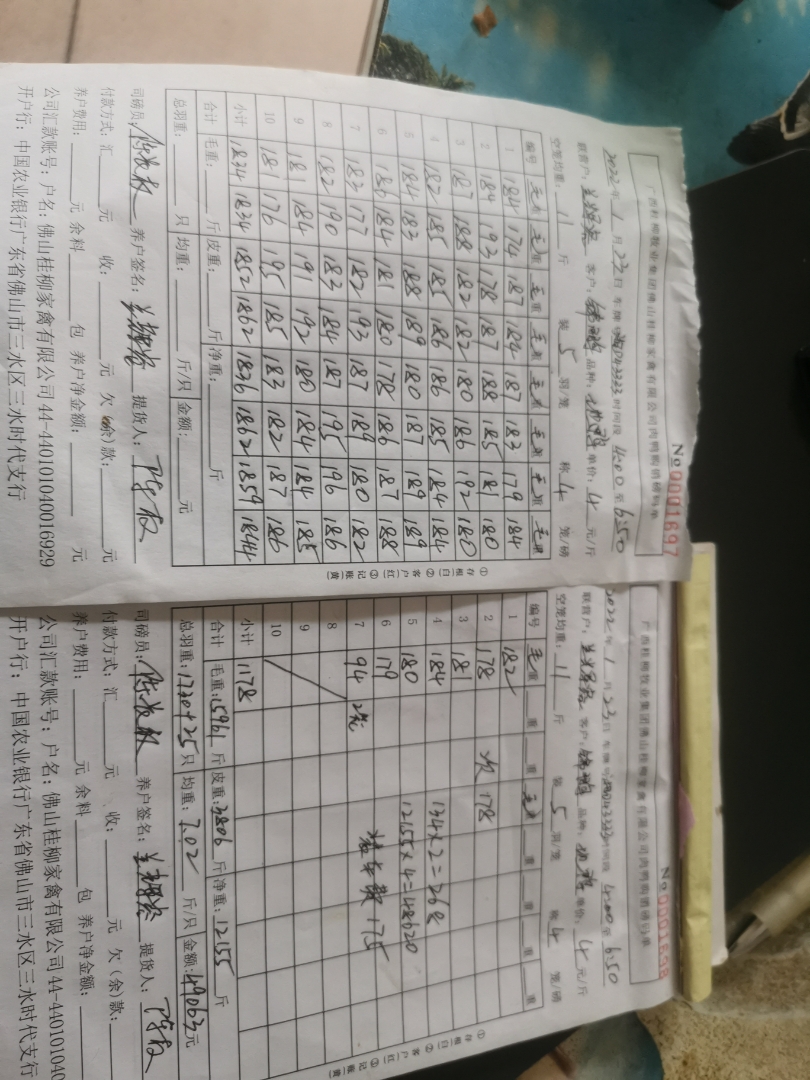 No 0001697
广西桂柳牧业集团佛山桂柳家禽有限公司肉鸭购销磅码单
2022年1月23日 车牌 时间段 4:00 至 6:50
联营户: 客户: 品种: 单价: 4 元/斤
空笼均重: 11 斤 装 5 羽/笼 称 4 笼/磅
编号 毛重 毛重 毛重 毛重 毛重 毛重 毛重 毛重
1 184 174 187 184 187 183 179 184
2 184 193 178 187 188 185 181 180
3 187 188 182 182 180 186 192 180
4 182 185 185 186 186 185 184 184
5 184 183 188 189 180 187 189 189
6 186 184 181 180 178 186 187 188
7 183 177 182 193 187 189 180 182
8 182 190 183 184 187 195 196 186
9 181 184 191 192 180 184 184 185
10 181 176 195 185 183 182 187 186
小计 1834 1834 1852 1862 1836 1862 1859 1844
合计 毛重: 斤 皮重: 斤 净重: 斤
总羽重: 只 均重: 斤/只 金额: 元
司磅员: 养户签名: 提货人:
付款方式: 汇 元 收: 元 欠(余)款: 元
养户费用: 元 余料 包 养户净金额: 元
公司汇款账号: 户名: 佛山桂柳家禽有限公司 44-440101040016929
开户行: 中国农业银行广东省佛山市三水区三水时代支行
①存根(白) ②客户(红) ③记账(黄)
No 0001698
广西桂柳牧业集团佛山桂柳家禽有限公司肉鸭购销磅码单
2022年1月23日 车牌号 时间段 4:00 至 6:50
联营户: 客户: 品种: 单价: 4 元/斤
空笼均重: 11 斤 装 5 羽/笼 称 4 笼/磅
编号 毛重 重 重 毛重 重 重 重 重
1 182
2 178 次 178
3 181
4 184 134×2=268
5 180 12155×4=48620
6 179
7 94 2笼 装车数 175
8
9
10
小计 1178
合计 毛重: 15961 斤 皮重: 3806 斤 净重: 12155 斤
总羽重: 1730+25 只 均重: 7.02 斤/只 金额: 49063 元
司磅员: 养户签名: 提货人:
付款方式: 汇 元 收: 元 欠(余)款:
养户费用: 元 余料 包 养户净金额:
公司汇款账号: 户名: 佛山桂柳家禽有限公司 44-44010104
开户行: 中国农业银行广东省佛山市三水区三水时代支行
①存根(白) ②客户(红) ③记账(黄)